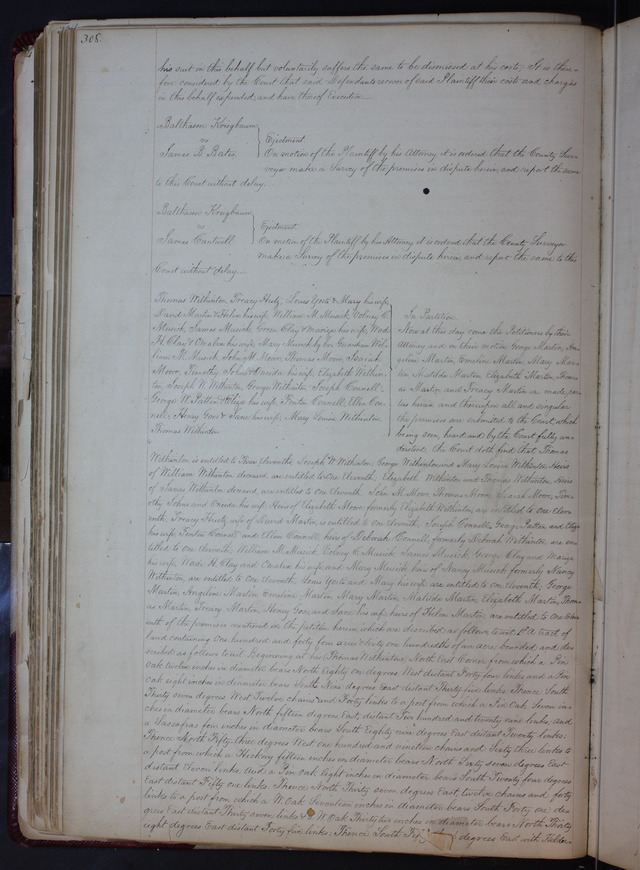 308.
his suit in this behalf but voluntarily suffers the same to be dismissed at his costs. It is there-
fore considered by the Court that said Defendants recover of said Plaintiff their costs and charges
in this behalf expended, and have thereof Execution
Balthasar Kriegbaum
vs
James B. Bates
Ejectment.
On motion of the Plaintiff by his Attorney it is ordered that the County Sur-
veyor make a Survey of the premises in dispute herein, and report the same
to this Court without delay.
Balthasar Kriegbaum
vs
James Cantwell
Ejectment
On motion of the Plaintiff by his Attorney, it is ordered that the County Surveyor
make a Survey of the premises in dispute herein and report the same to this
Court without delay.
Thomas Withinton, Treacy Hurty, Louis Yorts & Mary his wife,
David Martin & Helen his wife, William M. Musick, Volney C.
Musick, James Musick, Green Clay & Mariza his wife, Wade
H. Clay & Onalvia his wife, Mary Musick by her Guardian Wil-
liam M. Musick, John M. Moon, Thomas Moon, Isaiah
Moon, Timothy Johns & Oneida his wife, Elizabeth Within-
ton, Joseph W. Withinton, George Withinton, Joseph Connell,
George W. Patton & Eliza his wife, Fenton Connell, Ellen Con-
nell, Henry Gou & Jane his wife, Mary Louisa Withinton,
Thomas Withinton
In Partition.
Now at this day come the Petitioners by their
Attorney and on their motion George Martin, An-
geline Martin, Emaline Martin, Mary Mar-
tin, Matilda Martin, Elizabeth Martin, Thom-
as Martin, and Treacy Martin are made par-
ties herein and thereupon all and singular
the premises are submitted to the Court, which
being seen, heard and by the Court fully un-
derstood, the Court doth find that Thomas
Withinton is entitled to Four Elevenths, Joseph W. Withinton, George Withinton and Mary Louisa Withinton, Heirs
of William Withinton deceased, are entitled to one Eleventh, Elizabeth Withinton and Thomas Withinton, Heirs
of James Withinton deceased, are entitled to one Eleventh, John M. Moon, Thomas Moon, Isaiah Moon, Tim-
othy Johns and Oneida his wife, Heirs of Elizabeth Moon, formerly Elizabeth Withinton, are entitled to one Elev-
enth, Treacy Hurty, wife of David Martin, is entitled to one Eleventh, Joseph Connell, George Patton and Eliza
his wife, Fenton Connell and Ellen Connell, heirs of Deborah Connell, formerly Deborah Withinton, are en-
titled to one Eleventh, William M. Musick, Volney C. Musick, James Musick, George Clay and Mariza
his wife, Wade H. Clay and Onalvia his wife and Mary Musick heirs of Nancy Musick formerly Nancy
Withinton, are entitled to one Eleventh, Louis Yorts and Mary his wife are entitled to one Eleventh, George
Martin, Angeline Martin, Emaline Martin, Mary Martin, Matilda Martin, Elizabeth Martin, Thom-
as Martin, Treacy Martin, Henry Gou, and Jane his wife, heirs of Helen Martin, are entitled to one Elev-
enth of the premises mentioned in the petition herein, which are described as follows, to wit: A tract of
land containing One hundred and forty four acres & sixty one hundredths of an acre, bounded, and des-
cribed as follows to wit: Beginning at his (Thomas Withinton's) North East Corner, from which a Pin
Oak twelve inches in diameter bears North Eighty one degrees West distant Forty four links and a Pin
oak eight inches in diameter bears South Nine degrees East distant Thirty five links. Thence South
Thirty seven degrees West Twelve chains and Forty links to a post from which a Pin Oak Seven in-
ches in diameter bears North fifteen degrees East, distant Five hundred and twenty nine links, and
a Sassafras four inches in diameter bears South Eighty nine degrees east distant Twenty links.
Thence North Fifty three degrees West one hundred and nineteen chains and Sixty three links to
a post from which a Hickory fifteen inches in diameter bears North Sixty seven degrees East
distant Seven links. And a Pin Oak Eight inches in diameter bears South Twenty four degrees
East distant Fifty one links. Thence North Thirty seven degrees East, twelve chains and forty
links to a post from which a W. Oak Seventeen inches in diameter bears South Forty one de-
grees East distant Thirty seven links & W. Oak Thirty two inches in diameter bears North Thirty
eight degrees East distant Forty five links: Thence South degrees East with